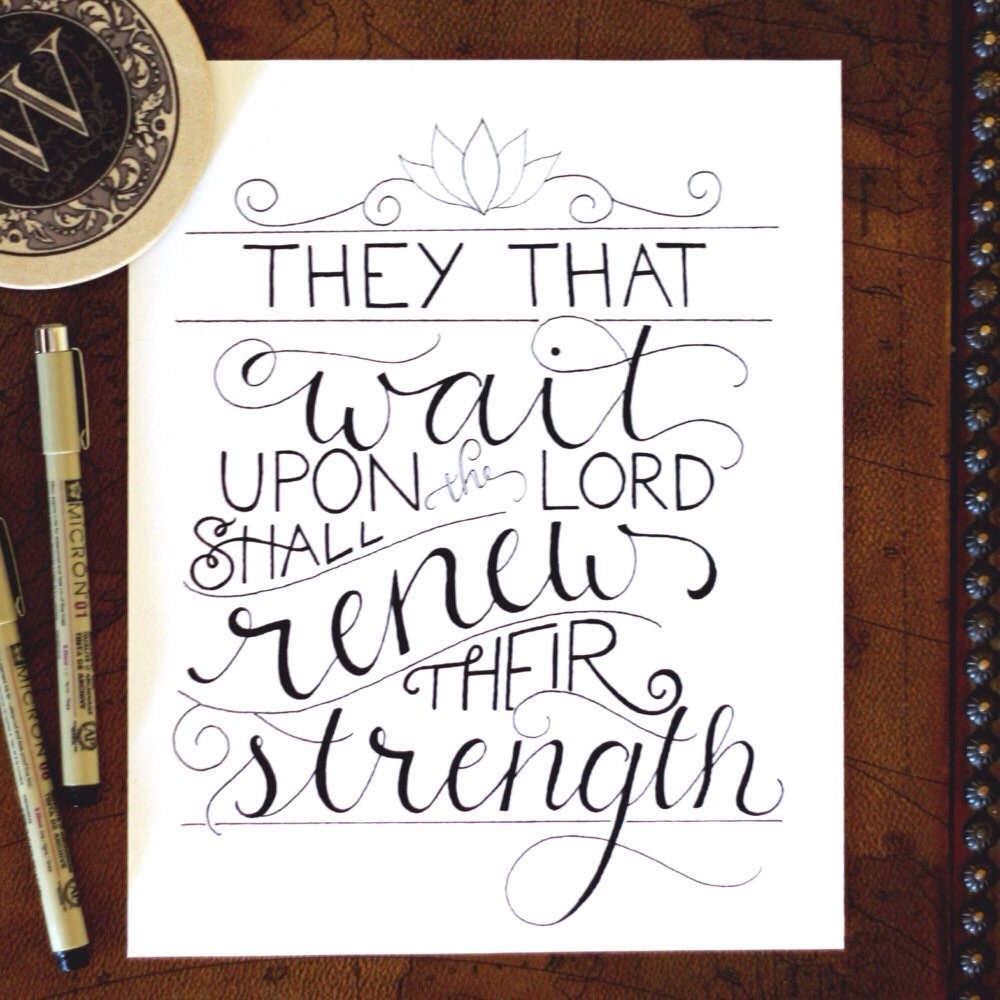 W
THEY THAT
wait
UPON the LORD
SHALL
renew
THEIR
strength
MICRON 01
MICRON 08